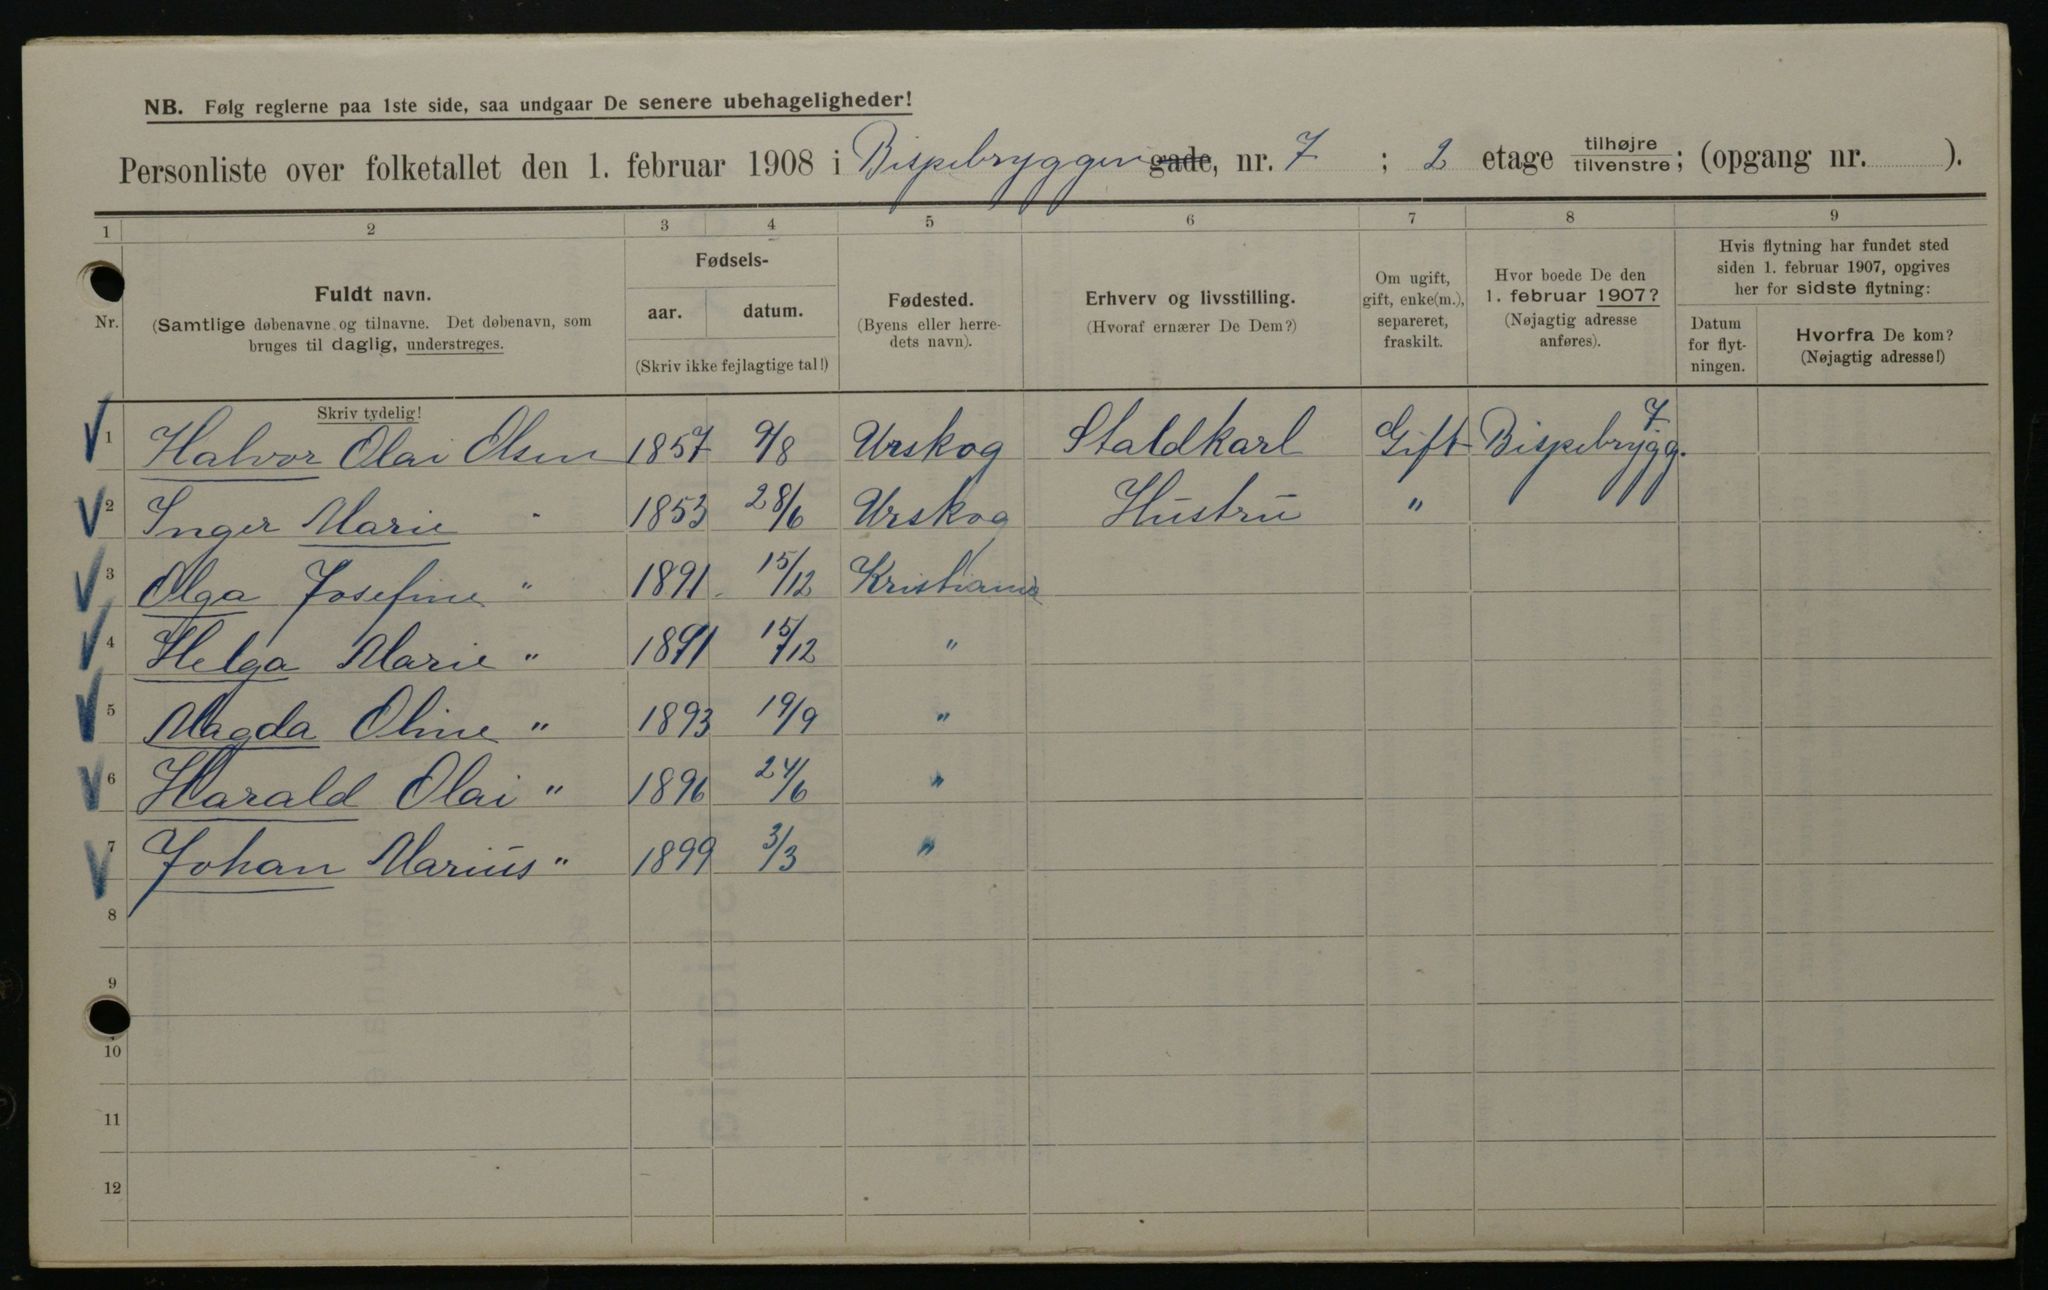 NB. Følg reglerne paa 1ste side, saa undgaar De senere ubehageligheder!
Personliste over folketallet den 1. februar 1908 i Bispebryggen gade, nr. 7 ; 2 etage tilhøjre tilvenstre; (opgang nr. ).
1 2 3 4 5 6 7 8 9
Nr.
Fuldt navn.
(Samtlige døbenavne og tilnavne. Det døbenavn, som
bruges til daglig, understreges.
Skriv tydelig!
Fødsels-
aar. datum.
(Skriv ikke fejlagtige tal!)
Fødested.
(Byens eller herre-
dets navn).
Erhverv og livsstilling.
(Hvoraf ernærer De Dem?)
Om ugift,
gift, enke(m.),
separeret,
fraskilt.
Hvor boede De den
1. februar 1907?
(Nøjagtig adresse
anføres).
Hvis flytning har fundet sted
siden 1. februar 1907, opgives
her for sidste flytning:
Datum
for flyt-
ningen.
Hvorfra De kom?
(Nøjagtig adresse!)
1 Halvor Olai Olsen 1857 9/8 Urskog Staldkarl Gift Bispebrygg. 7
2 Inger Marie " 1853 28/6 Urskog Hustru "
3 Olga Josefine " 1891. 15/12 Kristiania
4 Helga Marie " 1891 15/12 "
5 Magda Oline " 1893 19/9 "
6 Harald Olai " 1896 24/6 "
7 Johan Marius " 1899 3/3 "
8
9
10
11
12